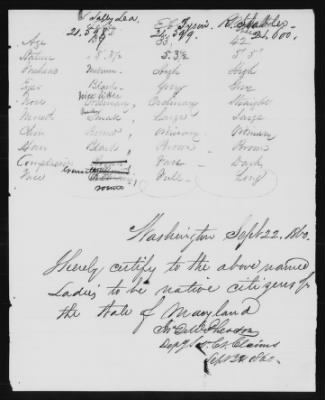 Sally Lea. E. G. Tyson. R. Stabler
21.598 21.599 21.600.
Age 33 42
Stature 5.3½ 5.3½ 5' 5"
Forehead Medium High High
Eyes Black Grey
Nose Ordinary, Ordinary Straight
Mouth Small, Large Large
Chin Round,
Hair Black, Brown Brown
Complexion Fair Dark
Face Full Long
Washington Sept 22. 1860.
I hereby certify to the above named
Ladies to be native citizens of
the State of Maryland
Claims
Sept 22 1860.